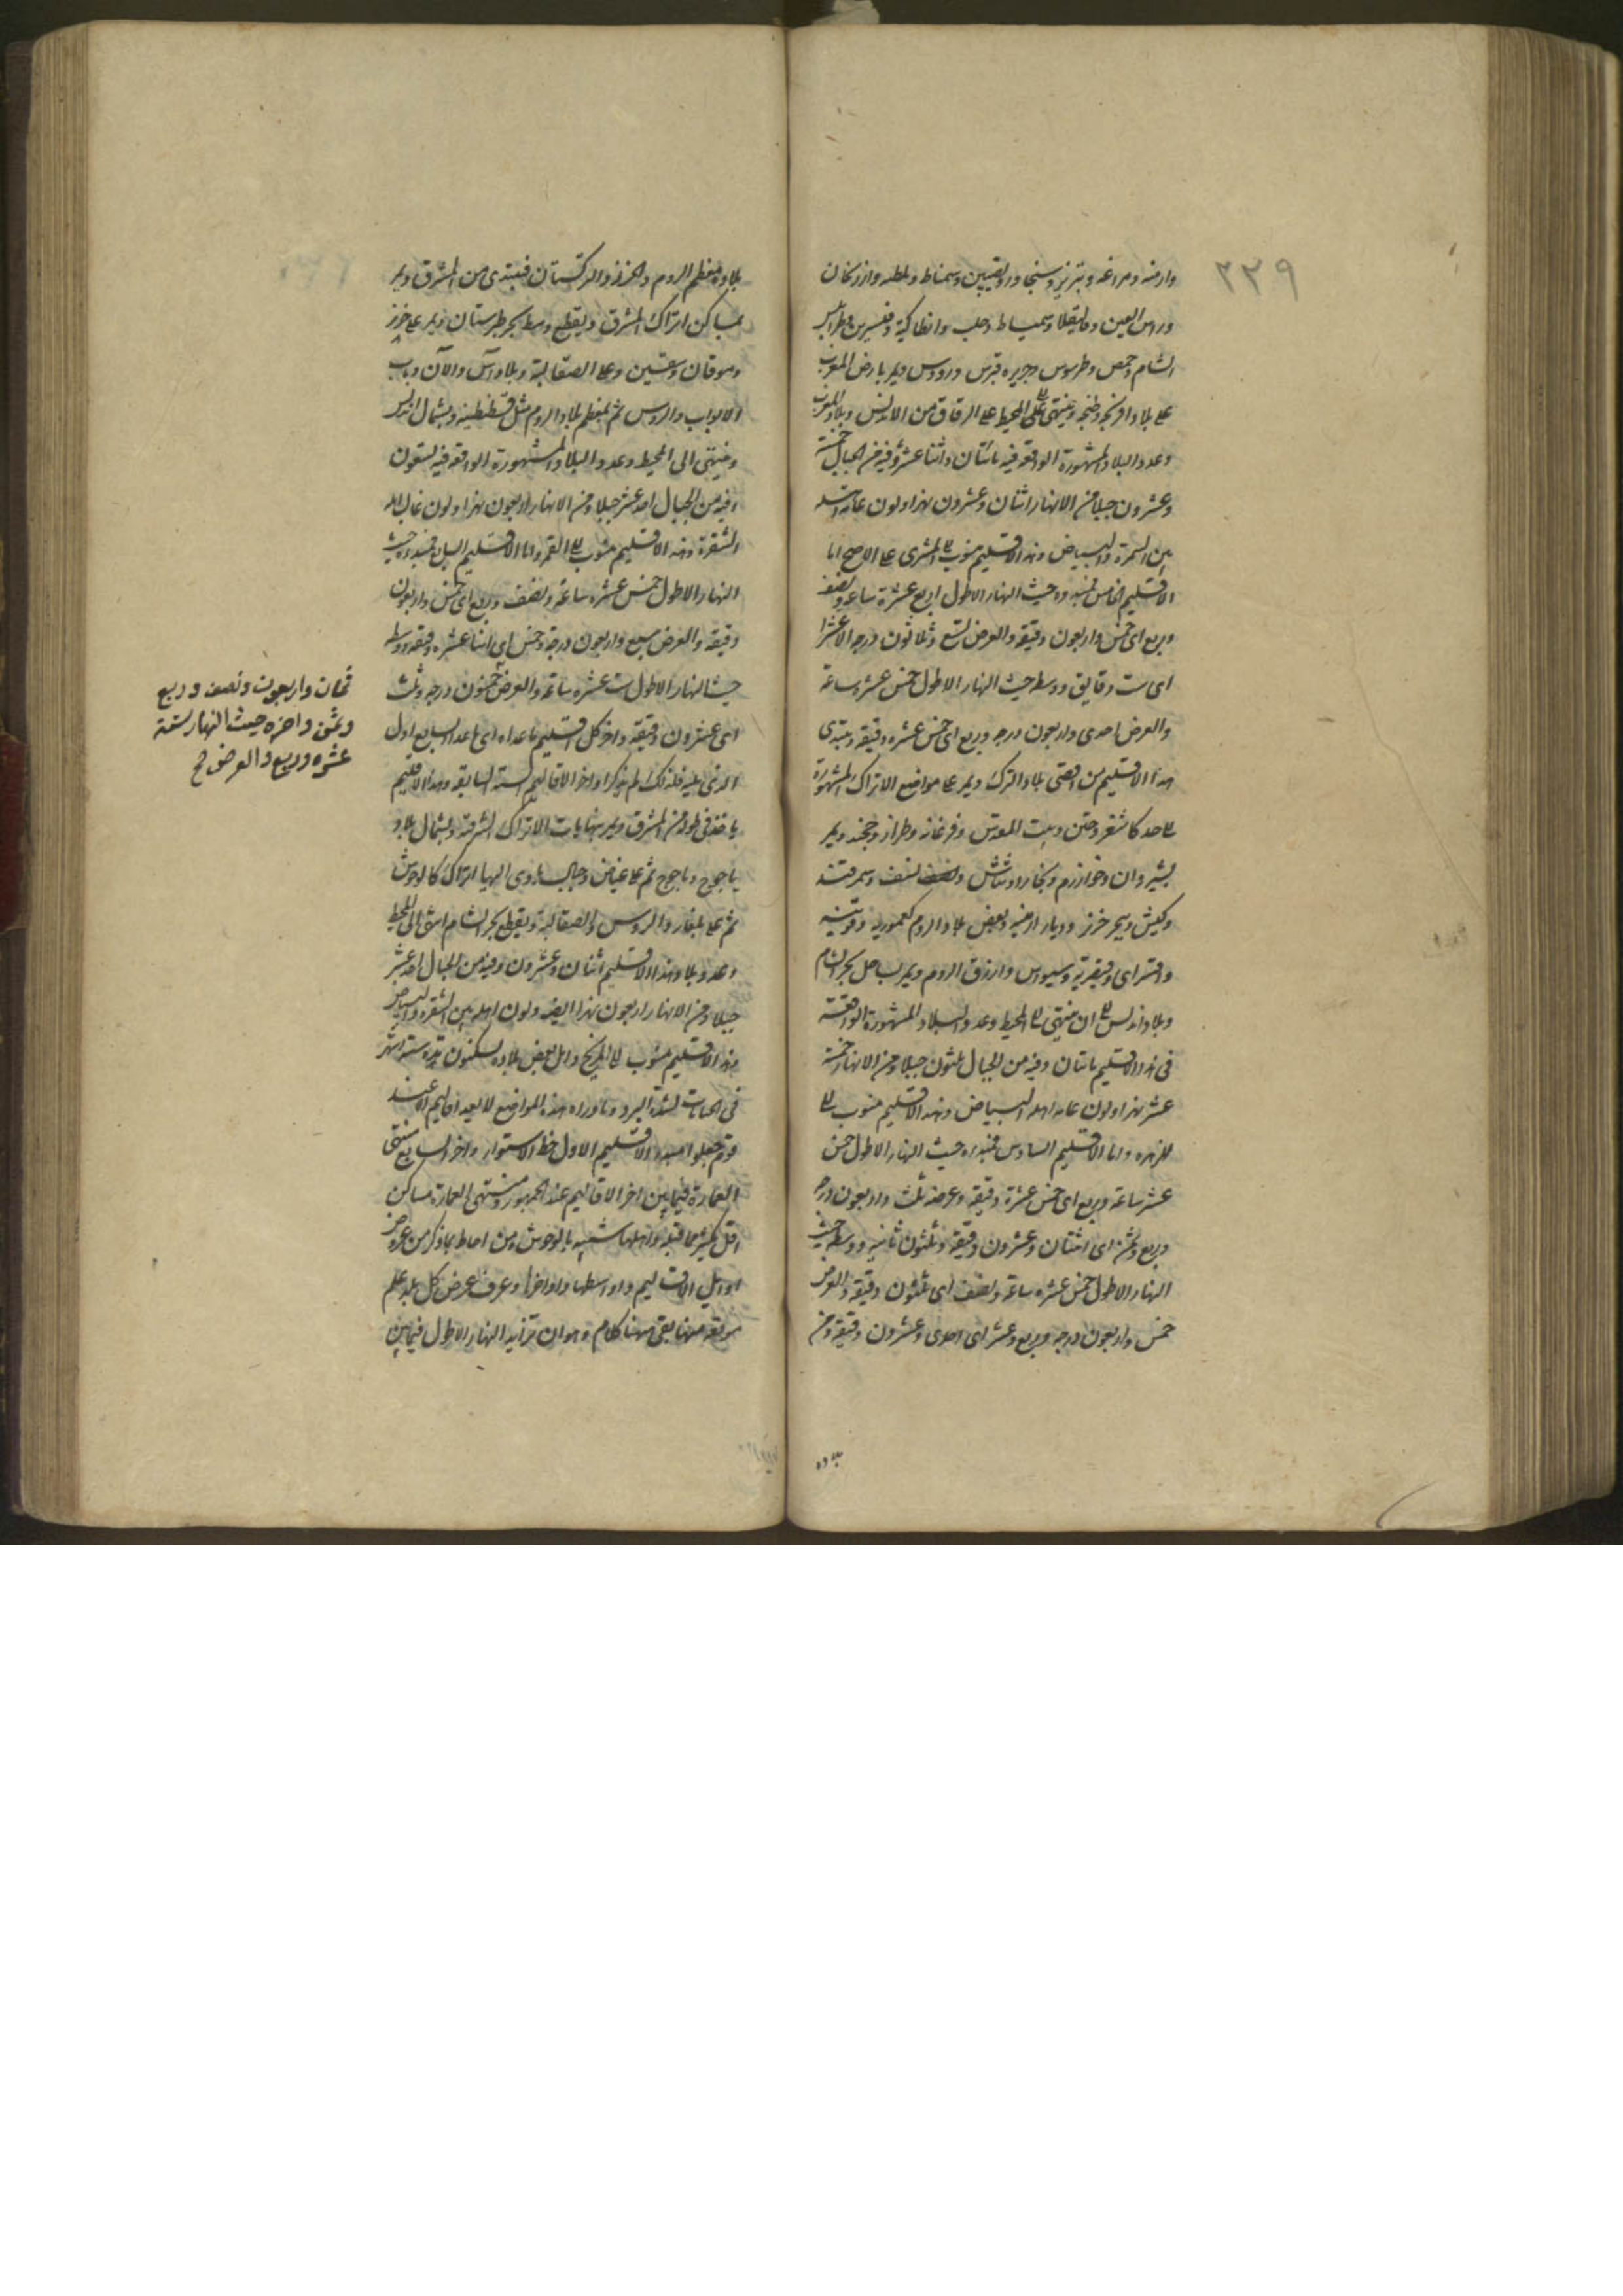 ٣٣٩
وارمنه ومراغه وتبريز وسنجار ونصيبين وسمناط وملطه وارزنجان
وراس العين وقاليقلا وسميساط وحلب وانطاكية وقنسرين وطرابلس
الشام وحمص وطرسوس وجزيره قبرس ورودس ويمر بارض المغرب
على بلاد افرنجه وطنجه وينتهى الى المحيط على الزقاق من الاندلس وبلاد المغرب
وعدد البلاد المشهورة الواقعه فيه مائتان واثنا عشر وفيه من الجبال خمسة
وعشرون جبلا ومن الانهار اثنان وعشرون نهرا ولون عامة اهله
بين السمرة والبياض وهذا الاقليم منسوب الى المشترى على الاصح اما
الاقليم الخامس فمبدءه حيث النهار الاطول اربع عشرة ساعه ونصف
وربع اى خمس واربعون دقيقه والعرض تسع وثلاثون درجه الا عشرا
اى ست دقايق ووسطه حيث النهار الاطول خمس عشرة ساعة
والعرض احدى واربعون درجه وربع اى خمس عشره دقيقه ويبتدى
هذا الاقليم من اقصى بلاد الترك ويمر على مواضع الاتراك المشهورة
الى حد كاشغر وختن وبيت المقدس وفرغانه وطراز وخجند ويمر
بشيروان وخوارزم وبخارا وشاش ونصف نسف وسمرقند
وكيش وبحر خزر وديار ارمنيه وبعض بلاد الروم كعمورية وقونيه
واقسراى وقيصرية وسيواس وارزن الروم ويمر بساحل بحر الشام
وبلاد اندلس الى ان ينتهى الى المحيط وعدد البلاد المشهورة الواقعة
فى هذا الاقليم مائتان وفيه من الجبال ثلثون جبلا ومن الانهار خمسة
عشر نهرا ولون عامه اهله البياض وهذا الاقليم منسوب الى
الزهره واما الاقليم السادس فمبدءه حيث النهار الاطول خمس
عشر ساعة وربع اى خمس عشرة دقيقه وعرضه ثلث واربعون درجه
وربع وثمن اى اثنتان وعشرون دقيقه وثلثون ثانيه ووسطه حيث
النهار الاطول خمس عشره ساعة ونصف اى ثلثون دقيقه والعرض
خمس واربعون درجه وربع وعشر اى احدى وعشرون دقيقه ومن
بلاده
بلاده معظم الروم والخزر والتركستان فيبتدى من المشرق ويمر
بمساكن اتراك المشرق ويقطع وسط بحر طبرستان ويمر على خزر
وموقان وعلى الصقالبة وبلاد آس والآن وباب
الابواب والروس ثم بمعظم بلاد الروم مثل قسطنطينيه وبشمال اندلس
وينتهى الى المحيط وعدد البلاد المشهورة الواقعه فيه تسعون
وفيه من الجبال احد عشر جبلا ومن الانهار اربعون نهرا ولون غالب اهله
الشقرة وهذا الاقليم منسوب الى القمر واما الاقليم السابع فمبدءه حيث
النهار الاطول خمس عشره ساعة ونصف وربع اى خمس واربعون
دقيقه والعرض سبع واربعون درجه وخمس اى اثنا عشره دقيقه ووسطه
حيث النهار الاطول ست عشره ساعة والعرض خمسون درجه وثلث
اى عشرون دقيقه واخر كل اقليم ما عداه اى ما عدا السابع اول
الذى يليه فلذلك لم يذكر اواخر الاقاليم الستة السابقه وهذا الاقليم
ياخذ فى طوله من المشرق ويمر بنهايات الاتراك الشرقيه وبشمال بلاد
ياجوج وماجوج ثم على غياض وجبال ياوى اليها اتراك كالوحوش
ثم على بلغار والروس والصقالبة ويقطع بحر الشام اسى الى المحيط
وعدد بلاد هذا الاقليم اثنان وعشرون وفيه من الجبال احد عشر
جبلا ومن الانهار اربعون نهرا ايضا ولون اهله بين الشقره والبياض
وهذا الاقليم منسوب الى المريخ واهل بعض بلاده يسكنون مدة ستة اشهر
فى الحمامات لشدة البرد وماوراء هذه المواضع لا يعد اقاليم الا عند
قوم جعلوا مبدء الاقليم الاول خط الاستواء واخر السابع منتهى
العمارة فيما بين اخر الاقاليم عند الجمهور ومنتهى العمارة مساكن
اقل بكثير مما قبله واهلها شبيه بالوحوش ومن احاط بما ذكر من عروض
اوائل الاقاليم واواسطها واواخرها وعرف عرض كل بلد علم
موقعه منها بقى ههنا كلام وهو ان تزايد النهار الاطول فيما بين
ثمان واربعون ونصف وربع
وثمن واخره حيث النهار ستة
عشره وربع والعرض